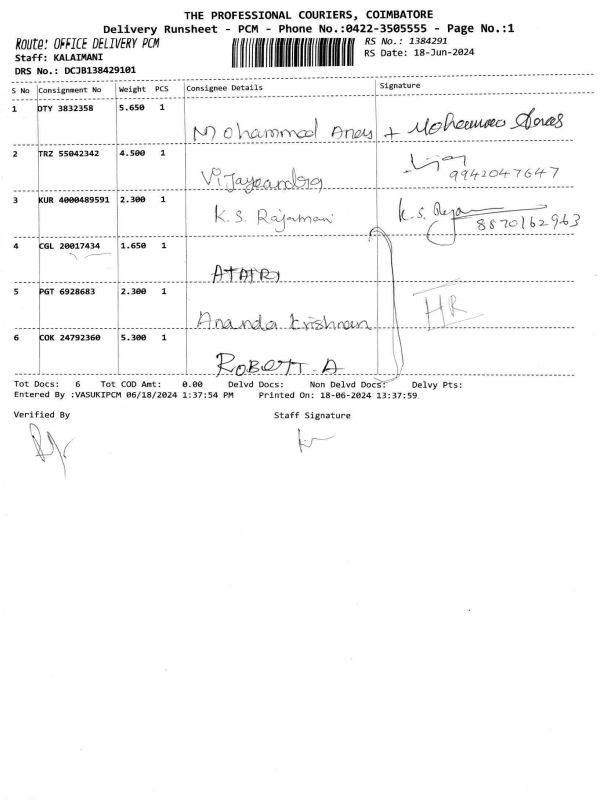 THE PROFESSIONAL COURIERS, COIMBATORE
Delivery Runsheet - PCM - Phone No.:0422-3505555 - Page No.:1
Route: OFFICE DELIVERY PCM
RS No.: 1384291
Staff: KALAIMANI
RS Date: 18-Jun-2024
DRS No.: DCJB138429101
S No Consignment No Weight PCS Consignee Details Signature
1 OTY 3832358 5.650 1
Mohammad Anas + Mohammad Anas
2 TRZ 55042342 4.500 1
9942047647
3 KUR 4000489591 2.300 1 K.S. Rajamani K.S. Raja
8870162963
4 CGL 20017434 1.650 1
5 PGT 6928683 2.300 1 HR
Ananda Krishnan
6 COK 24792360 5.300 1
ROBERT. A
Tot Docs: 6 Tot COD Amt: 0.00 Delvd Docs: Non Delvd Docs: Delvy Pts:
Entered By :VASUKIPCM 06/18/2024 1:37:54 PM Printed On: 18-06-2024 13:37:59
Verified By Staff Signature